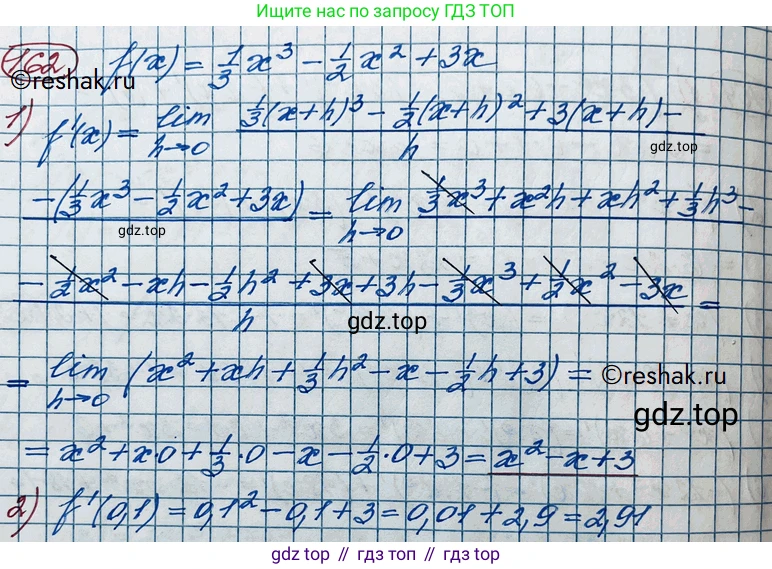 Ищите нас по запросу ГДЗ ТОП
162. f(x) = 1/3 x³ - 1/2 x² + 3x
©reshak.ru
1) f'(x) = lim h→0 (1/3(x+h)³ - 1/2(x+h)² + 3(x+h) - / h
gdz.top
-(1/3 x³ - 1/2 x² + 3x) = lim h→0 1/3 x³ + x²h + xh² + 1/3 h³ -
gdz.top
- 1/2 x² - xh - 1/2 h² + 3x + 3h - 1/3 x³ + 1/2 x² - 3x / h =
gdz.top
= lim h→0 (x² + xh + 1/3 h² - x - 1/2 h + 3) =
©reshak.ru
gdz.top
= x² + x·0 + 1/3·0 - x - 1/2·0 + 3 = x² - x + 3
2) f'(0,1) = 0,1² - 0,1 + 3 = 0,01 + 2,9 = 2,91
gdz.top // гдз топ // gdz.top